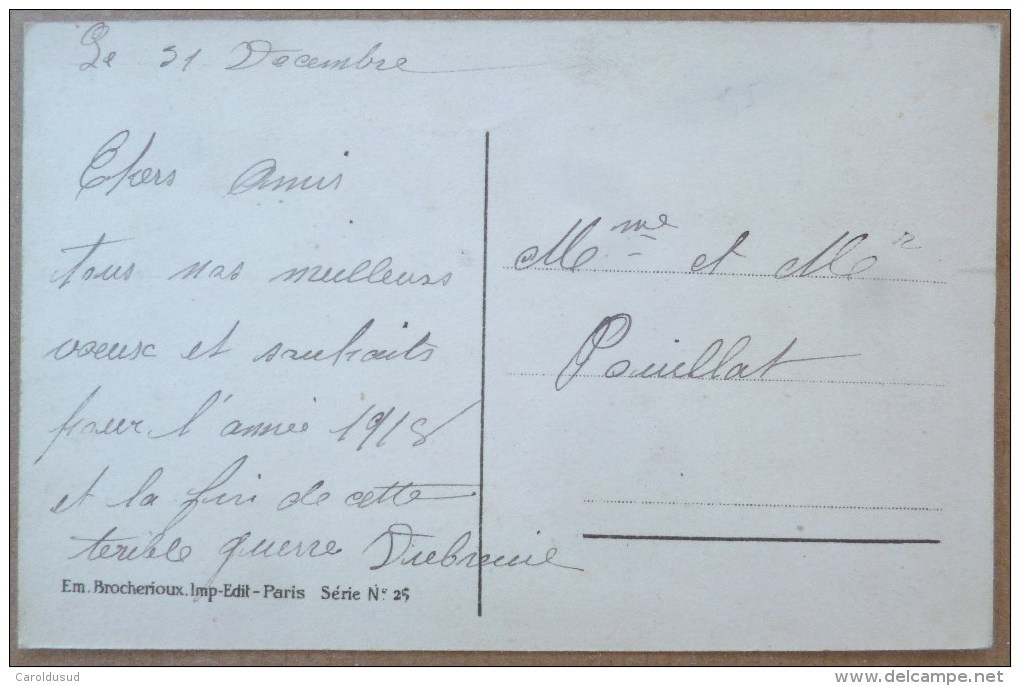 Le 31 Decembre
Chers Amis
tous nos meilleurs
voeux et souhaits
pour l'année 1918
et la fin de cette
terible guerre Dubreuil
Em. Brocherioux. Imp-Edit-Paris Série N° 25
Mme et Mr
Pouillat
Caroldusud
www.delcampe.net